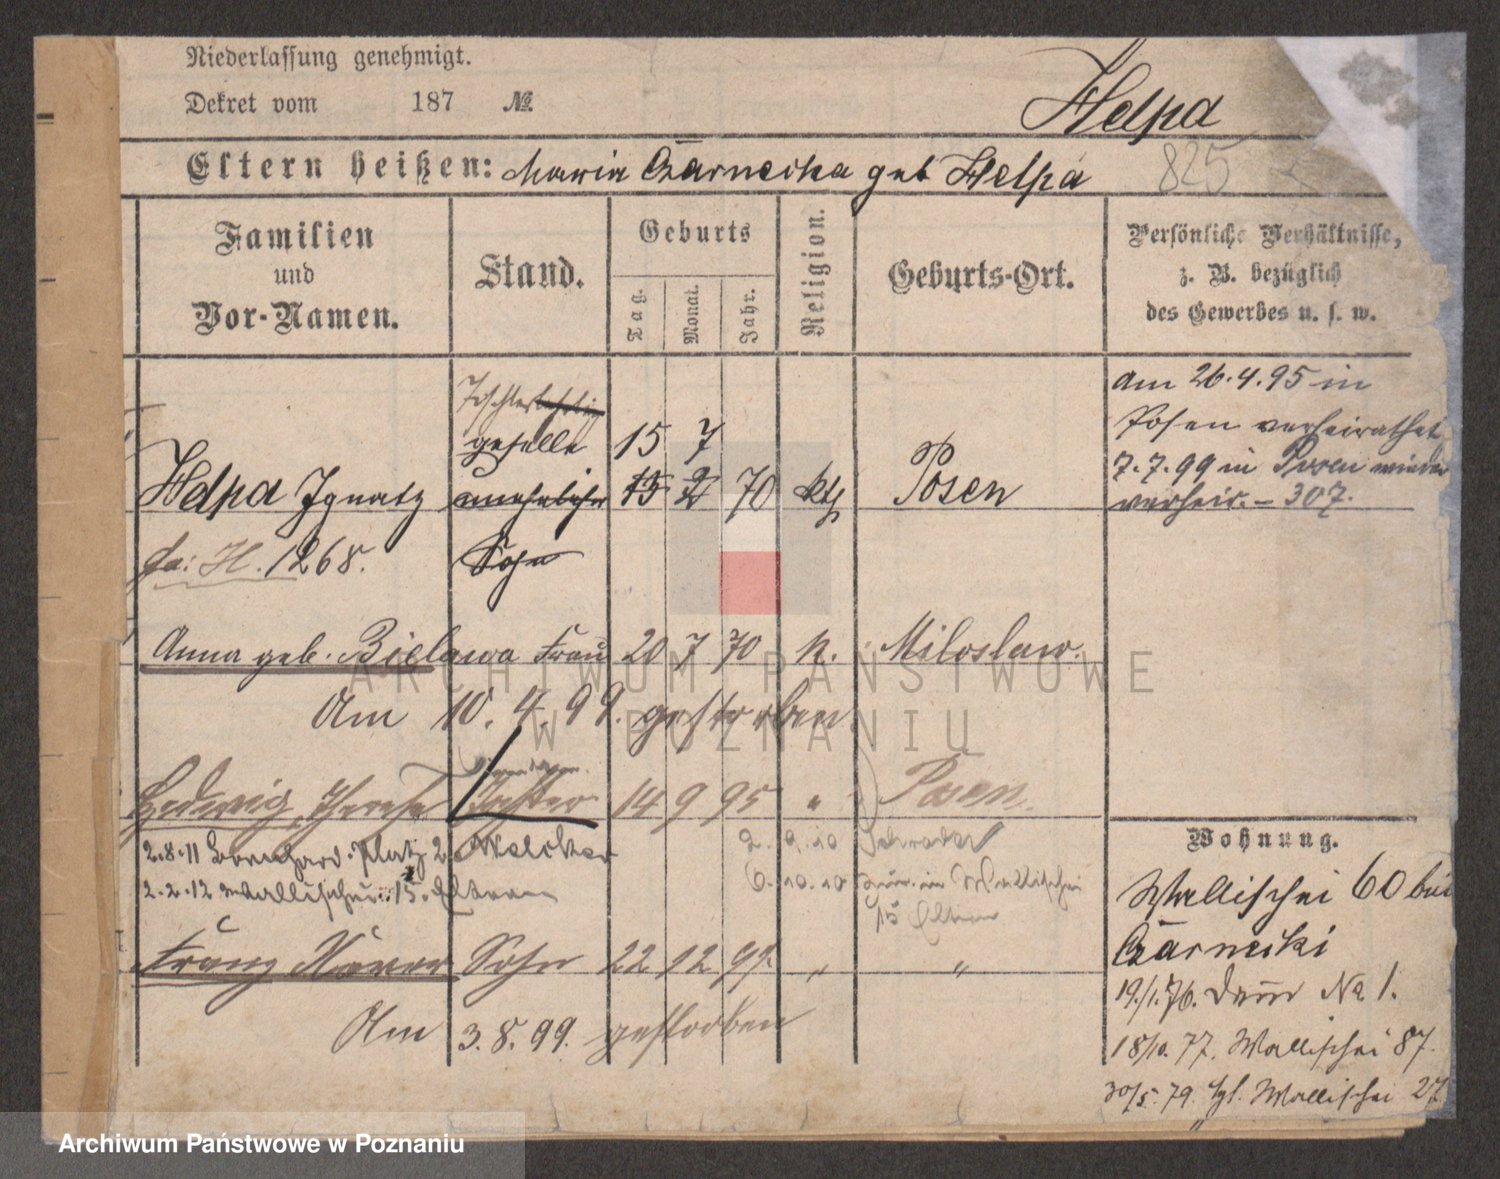 Niederlassung genehmigt.
Dekret vom 187 №
Helpa
Eltern heißen: Maria Czarnecka geb Helpa
825
Familien und Vor-Namen.
Stand.
Geburts
Tag.
Monat.
Jahr.
Religion.
Geburts-Ort.
Persönliche Verhältnisse,
z. B. bezüglich
des Gewerbes u. s. w.
Tischler
geselle
15 7
Helpa Ignatz unehelicher 15 2 70 kth Posen
Sohn
fa: H. 1268.
am 26.4.95 in
Posen verheirathet
7.7.99 in Posen wieder
verheir. – 307.
Anna geb. Bielawa Frau 20 7 70 k. Miloslaw.
Am 10.4.99. gestorben
Hedwig, Therese Tochter 14 9 95 " Posen.
2.8.11 Bernhard-Platz 2
2.2.12 Wallischei 15. Eltern
2.9.10
6.10.10 Wallischei
15 Eltern
Franz Sohn 22 12 97. " "
Am 3.8.99. gestorben
Wohnung.
Wallischei 60 bei
Czarnecki
19./1.76. No 1.
18/10. 77. Wallischei 87.
30/5. 79. Wallischei 27
ARCHIWUM PAŃSTWOWE
W POZNANIU
Archiwum Państwowe w Poznaniu